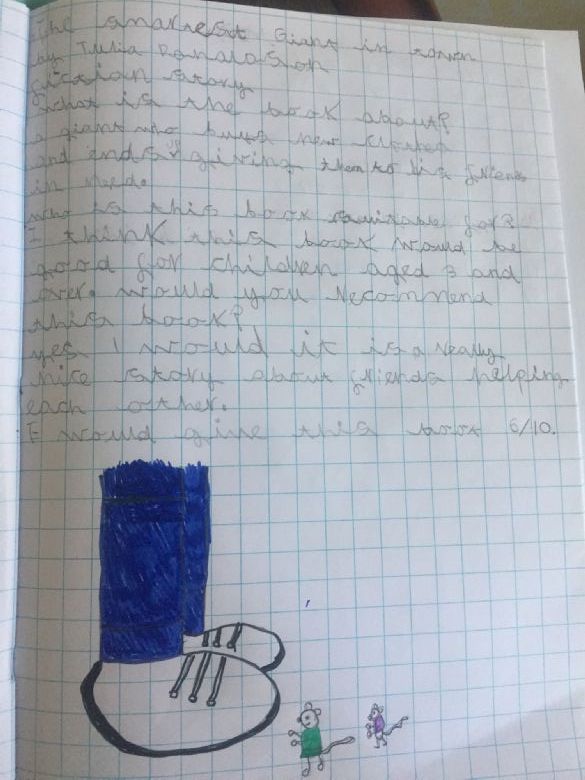 The smartest Giant in town
by Julia Donaldson
fiction story
what is the book about?
a giant who buys new clothes
and ends up giving them to his friends
in need.
who is this book suitable for?
I think this book would be
good for children aged 3 and
over. would you recommend
this book?
yes I would it is a really
nice story about friends helping
each other.
I would give this book 6/10.